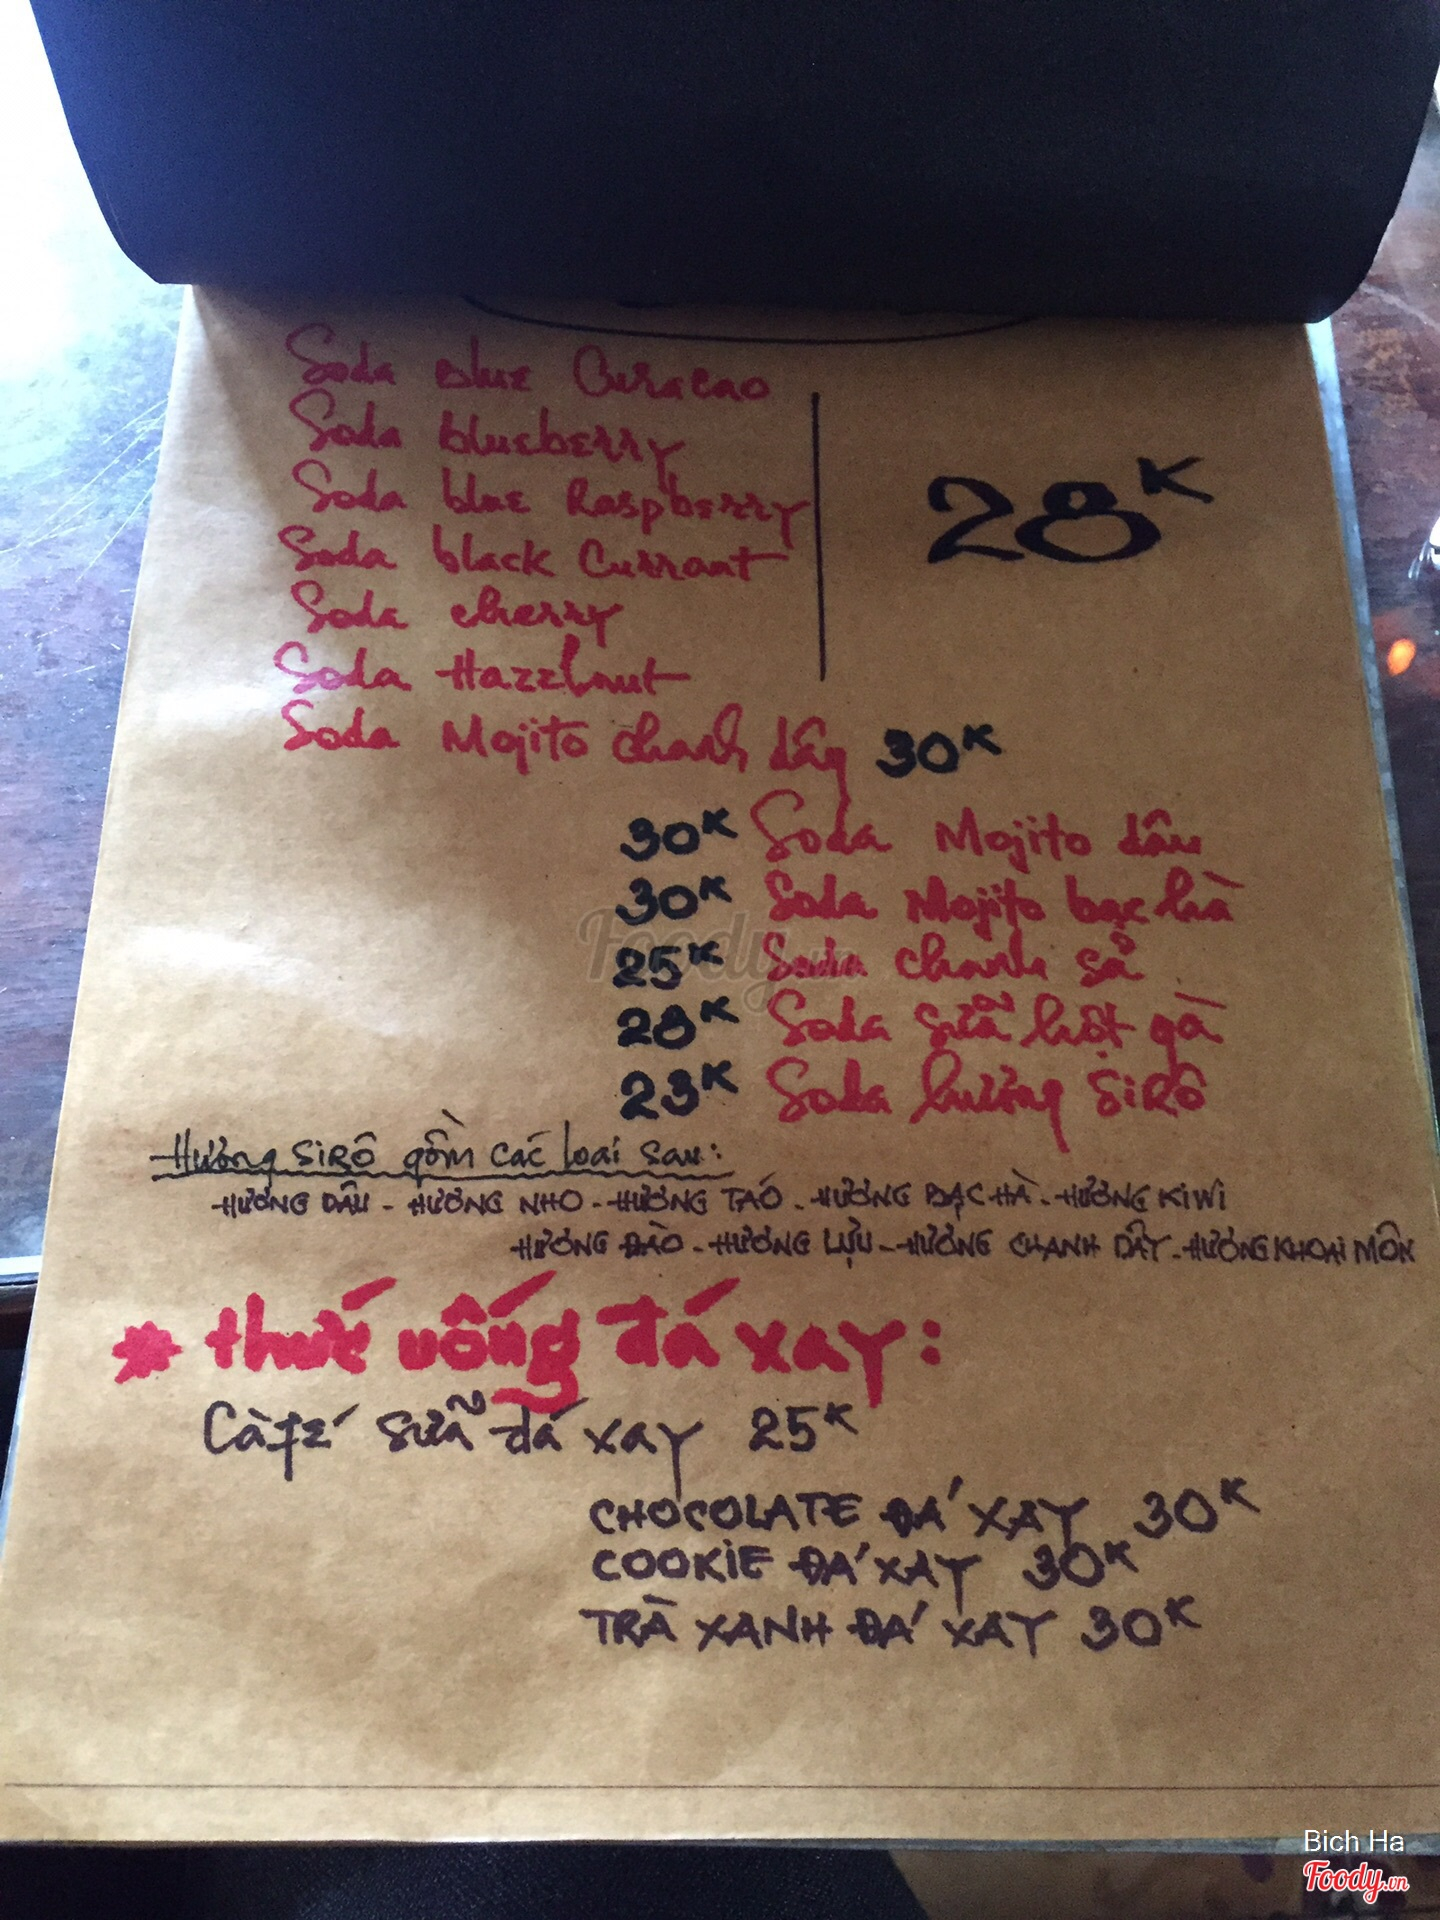 Soda blue Curacao
Soda blueberry
Soda blue Raspberry
28K
Soda black Currant
Soda cherry
Soda Hazelnut
Soda Mojito chanh dây 30K
30K Soda Mojito dâu
30K Soda Mojito bạc hà
25K Soda chanh sả
28K Soda sữa hột gà
23K Soda hương SiRÔ
Hương SiRÔ gồm các loại sau:
HƯƠNG DÂU - HƯƠNG NHO - HƯƠNG TÁO - HƯƠNG BẠC HÀ - HƯƠNG KiWi
HƯƠNG ĐÀO - HƯƠNG LỰU - HƯƠNG CHANH DÂY - HƯƠNG KHOAI MÔN
* thức uống đá xay:
Càfé sữa đá xay 25K
CHOCOLATE ĐÁ XAY 30K
COOKiE ĐÁ XAY 30K
TRÀ XANH ĐÁ XAY 30K
Foody.vn
Bich Ha
Foody.vn